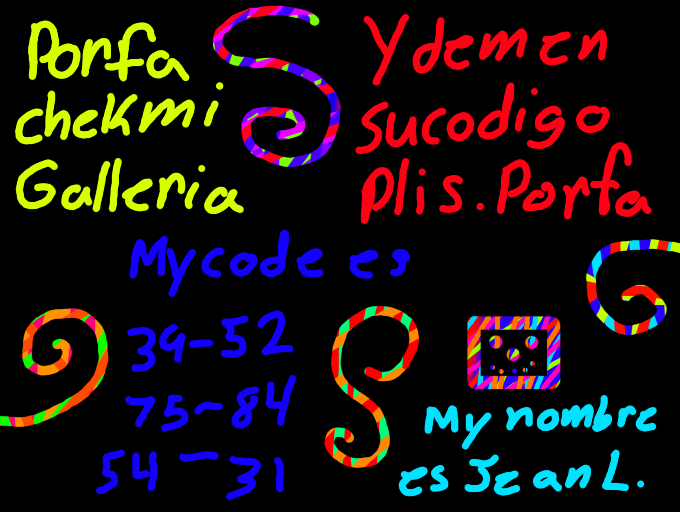 Porfa
chek mi
Galleria
Y demen
su codigo
plis. Porfa
My code es
39-52
75-84
54-31
My nombre
es Jean L.